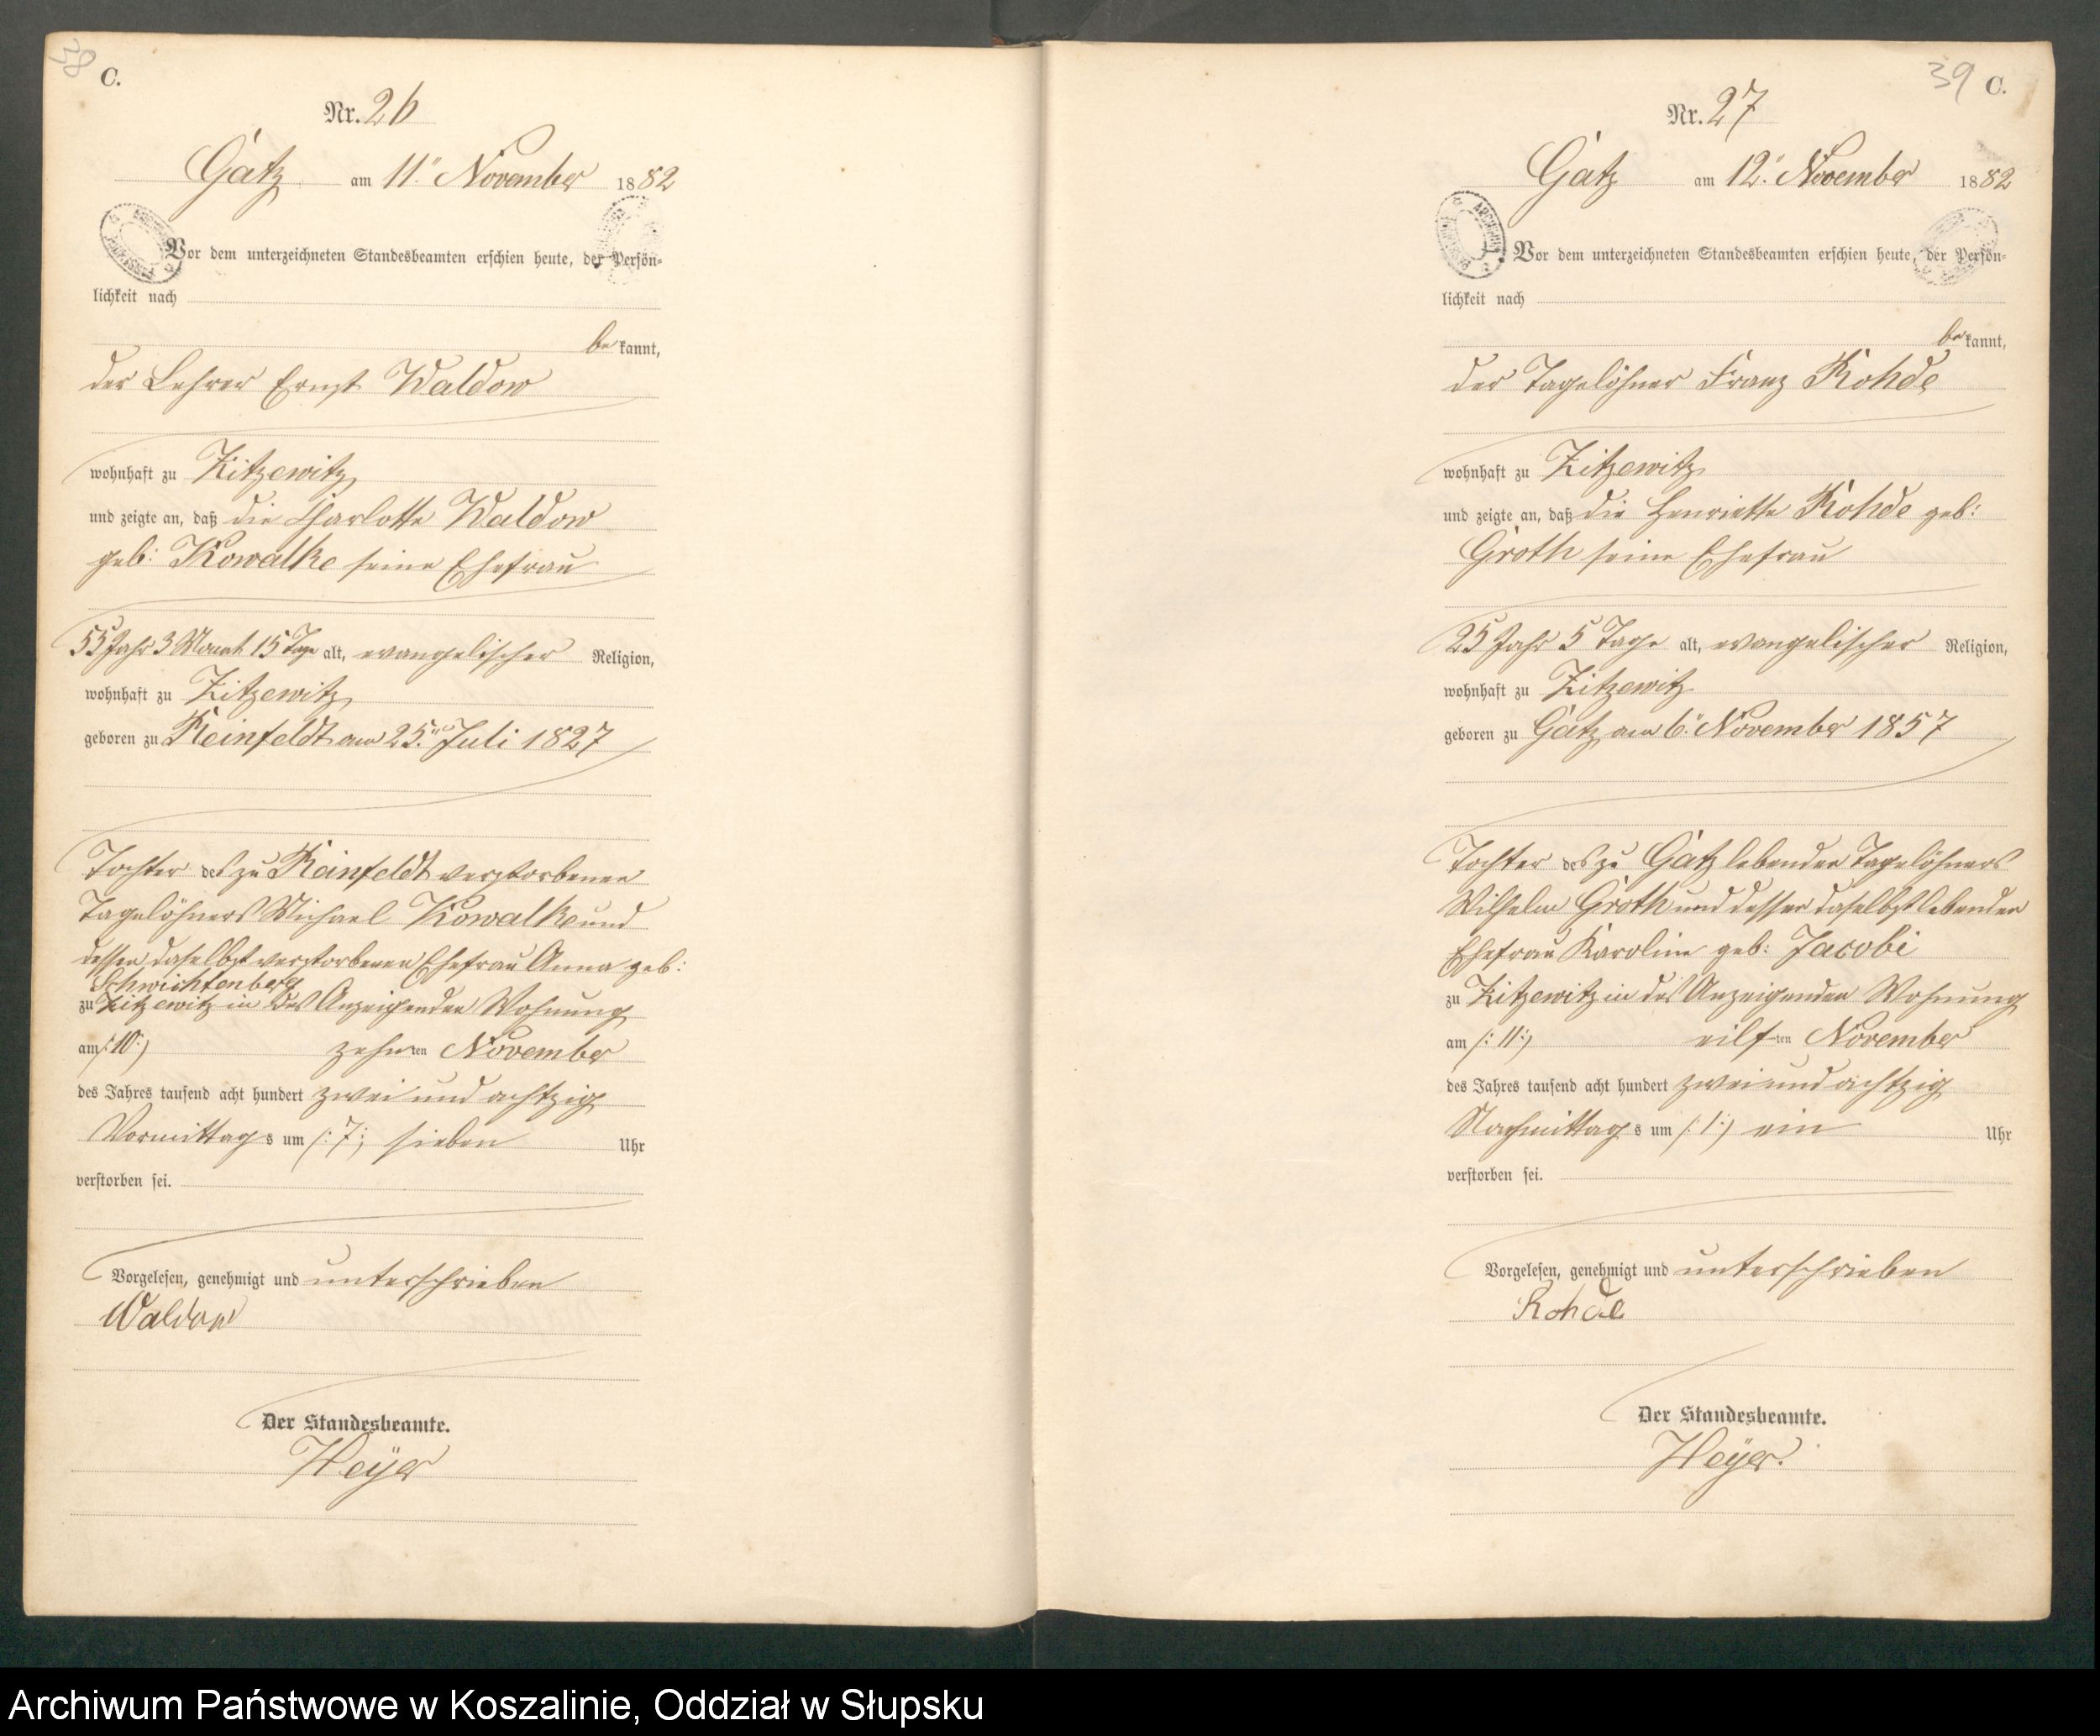 38
C.
Nr. 26
Gatz am 11ten November 1882
Vor dem unterzeichneten Standesbeamten erschien heute, der Persön-
lichkeit nach
bekannt,
der Lehrer Ernst Waldow
wohnhaft zu Zitzewitz
und zeigte an, daß die Charlotte Waldow
geb: Kowalke seine Ehefrau
55 Jahr 3 Monat 15 Tage alt, evangelischer Religion,
wohnhaft zu Zitzewitz
geboren zu Reinfeldt am 25ten Juli 1827
Tochter des zu Reinfeldt verstorbenen
Tagelöhners Michael Kowalke und
dessen daselbst verstorbenen Ehefrau Anna geb:
Schwichtenberg
zu Zitzewitz in des Anzeigenden Wohnung
am /: 10 :/ zehnten November
des Jahres tausend acht hundert zwei und achtzig
Vormittags um /: 7 :/ sieben Uhr
verstorben sei.
Vorgelesen, genehmigt und unterschrieben
Waldow
Der Standesbeamte.
Heyer
39
C.
Nr. 27
Gatz am 12ten November 1882
Vor dem unterzeichneten Standesbeamten erschien heute, der Persön-
lichkeit nach
bekannt,
der Tagelöhner Franz Rohde
wohnhaft zu Zitzewitz
und zeigte an, daß die Henriette Rohde geb:
Groth seine Ehefrau
25 Jahr 5 Tage alt, evangelischer Religion,
wohnhaft zu Zitzewitz
geboren zu Gatz am 6ten November 1857
Tochter des zu Gatz lebenden Tagelöhners
Wilhelm Groth und dessen daselbst lebenden
Ehefrau Karoline geb: Jacobi
zu Zitzewitz in des Anzeigenden Wohnung
am /: 11 :/ eilften November
des Jahres tausend acht hundert zwei und achtzig
Nachmittags um /: 1 :/ ein Uhr
verstorben sei.
Vorgelesen, genehmigt und unterschrieben
Rohde
Der Standesbeamte.
Heyer.
Archiwum Państwowe w Koszalinie, Oddział w Słupsku